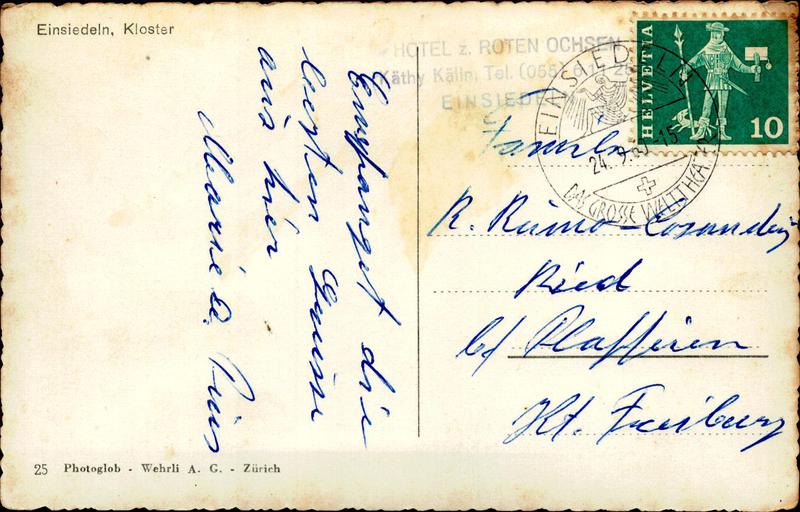 Einsiedeln, Kloster
HOTEL z. ROTEN OCHSEN
Käthy Kälin, Tel. (055)
EINSIEDELN
EINSIEDELN
24.-9.
DAS GROSSE WELTTHEATER
HELVETIA
10
Empfanget die
besten Grüsse
aus hier
Marie &
Familie
R. Rumo-Cosandey
Ried
b/ Plaffeien
Kt. Freiburg
25 Photoglob - Wehrli A. G. - Zürich